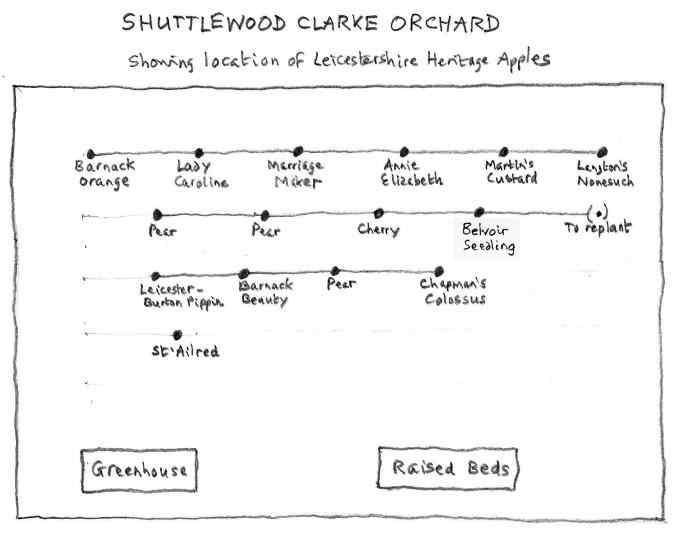 SHUTTLEWOOD CLARKE ORCHARD
Showing location of Leicestershire Heritage Apples
Barnack Orange
Lady Caroline
Marriage Maker
Annie Elizabeth
Martin's Custard
Langton's Nonesuch
Pear
Pear
Cherry
Belvoir Seedling
(•)
To replant
Leicester-
Burton Pippin
Barnack Beauty
Pear
Chapman's Colossus
St. Ailred
Greenhouse
Raised Beds